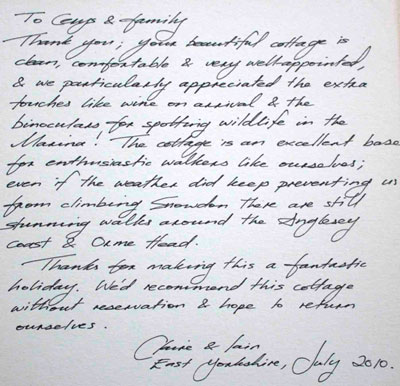 To Gwys & family
Thank you; your beautiful cottage is
clean, comfortable & very well-appointed,
& we particularly appreciated the extra
touches like wine on arrival & the
binoculars for spotting wildlife in the
Marina! The cottage is an excellent base
for enthusiastic walkers like ourselves;
even if the weather did keep preventing us
from climbing Snowdon there are still
stunning walks around the Anglesey
coast & Orme Head.
Thanks for making this a fantastic
holiday. We'd recommend this cottage
without reservation & hope to return
ourselves.
Claire & Iain
East Yorkshire, July 2010.